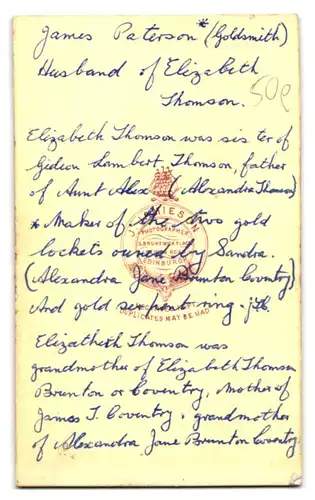 James Paterson * (Goldsmith)
Husband of Elizabeth
Thomson.
50p
Elizabeth Thomson was sister of
Gideon Lambert Thomson, father
of Aunt Alex (Alexandra Thomson)
* Maker of the two gold
lockets owned by Sandra.
(Alexandra Jane Brunton Coventry)
And gold serpent ring.
Elizabeth Thomson was
grandmother of Elizabeth Thomson
Brunton or Coventry, Mother of
James T. Coventry, grandmother
of Alexandra Jane Brunton Coventry.
PHOTOGRAPHER
EDINBURGH
DUPLICATES MAY BE HAD